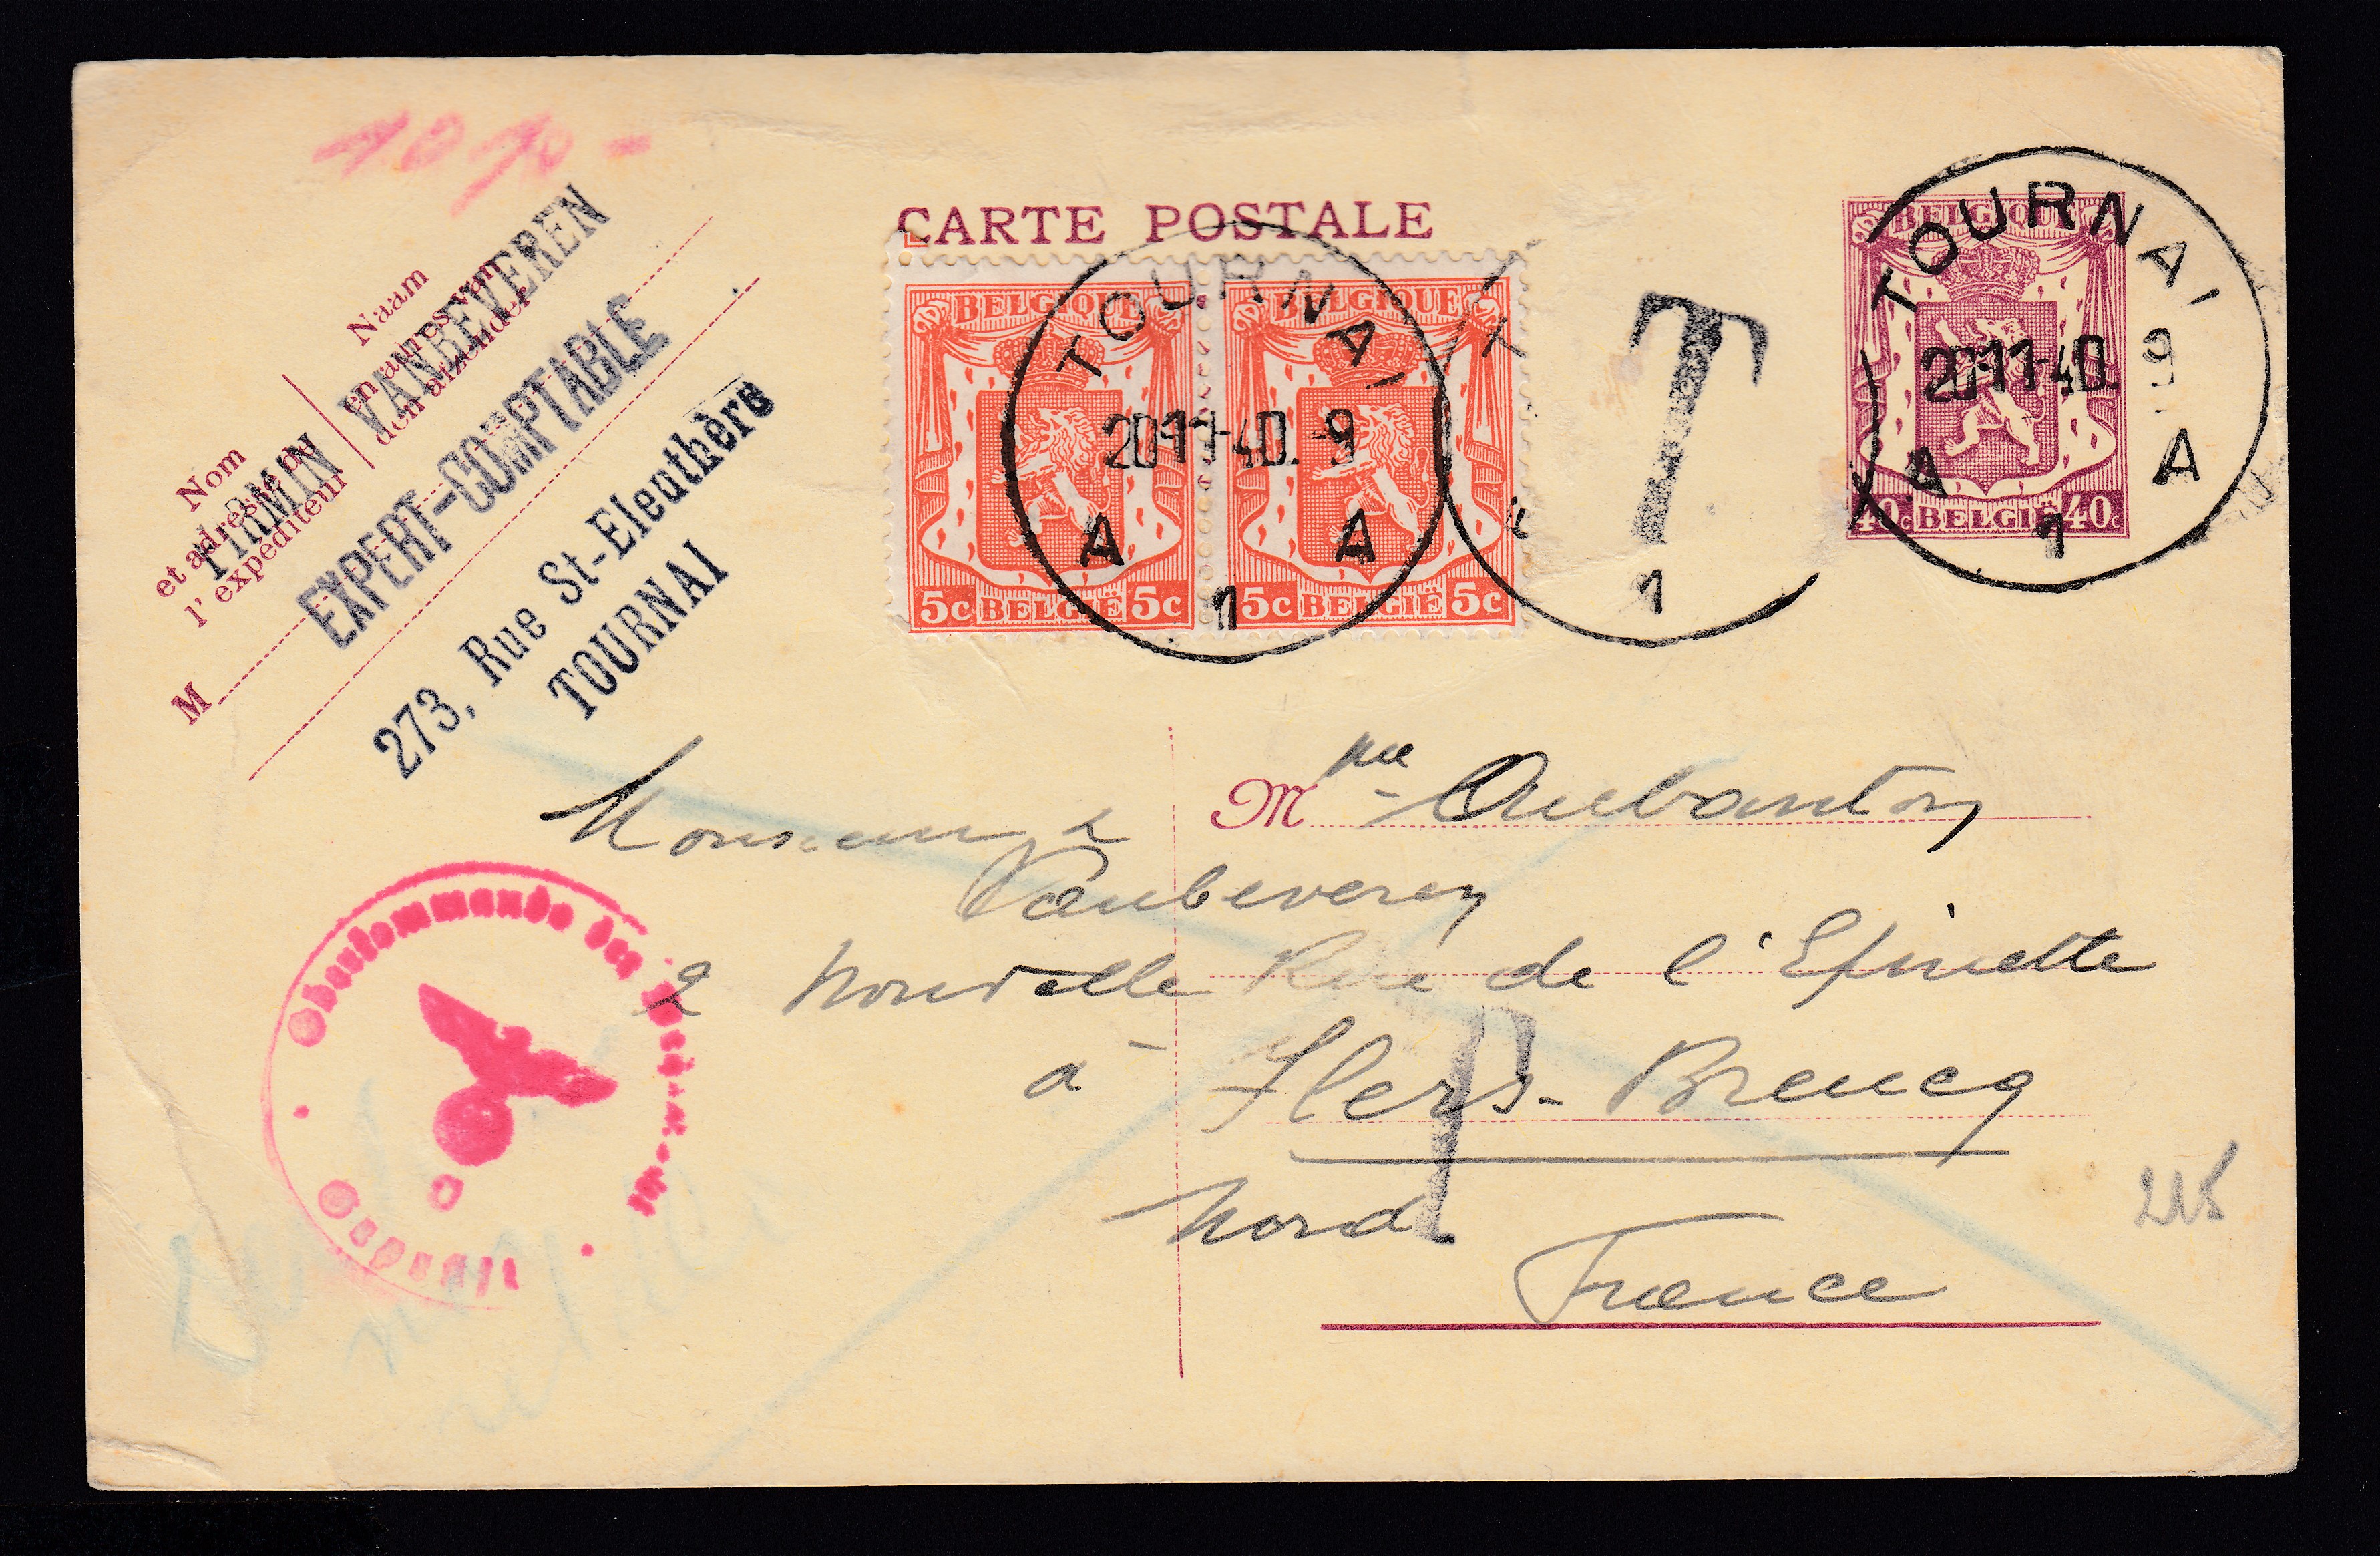 CARTE POSTALE
Nom
et adresse de
l'expéditeur
Naam
en adres van
den afzender
M
FIRMIN VANBEVEREN
EXPERT-COMPTABLE
273, Rue St-Eleuthère
TOURNAI
BELGIQUE
5c BELGIË 5c
BELGIQUE
5c BELGIË 5c
TOURNAI
20-11-40. -9
A A
1
T
T
1
BELGIQUE
40c BELGIË 40c
TOURNAI
20-11-40. 9
A A
1
M
Monsieur
Vanbeveren
2 Nouvelle Rue de l'Epinette
à Flers-Breucq
Nord
France
T
Oberkommando der Wehrmacht
Geprüft